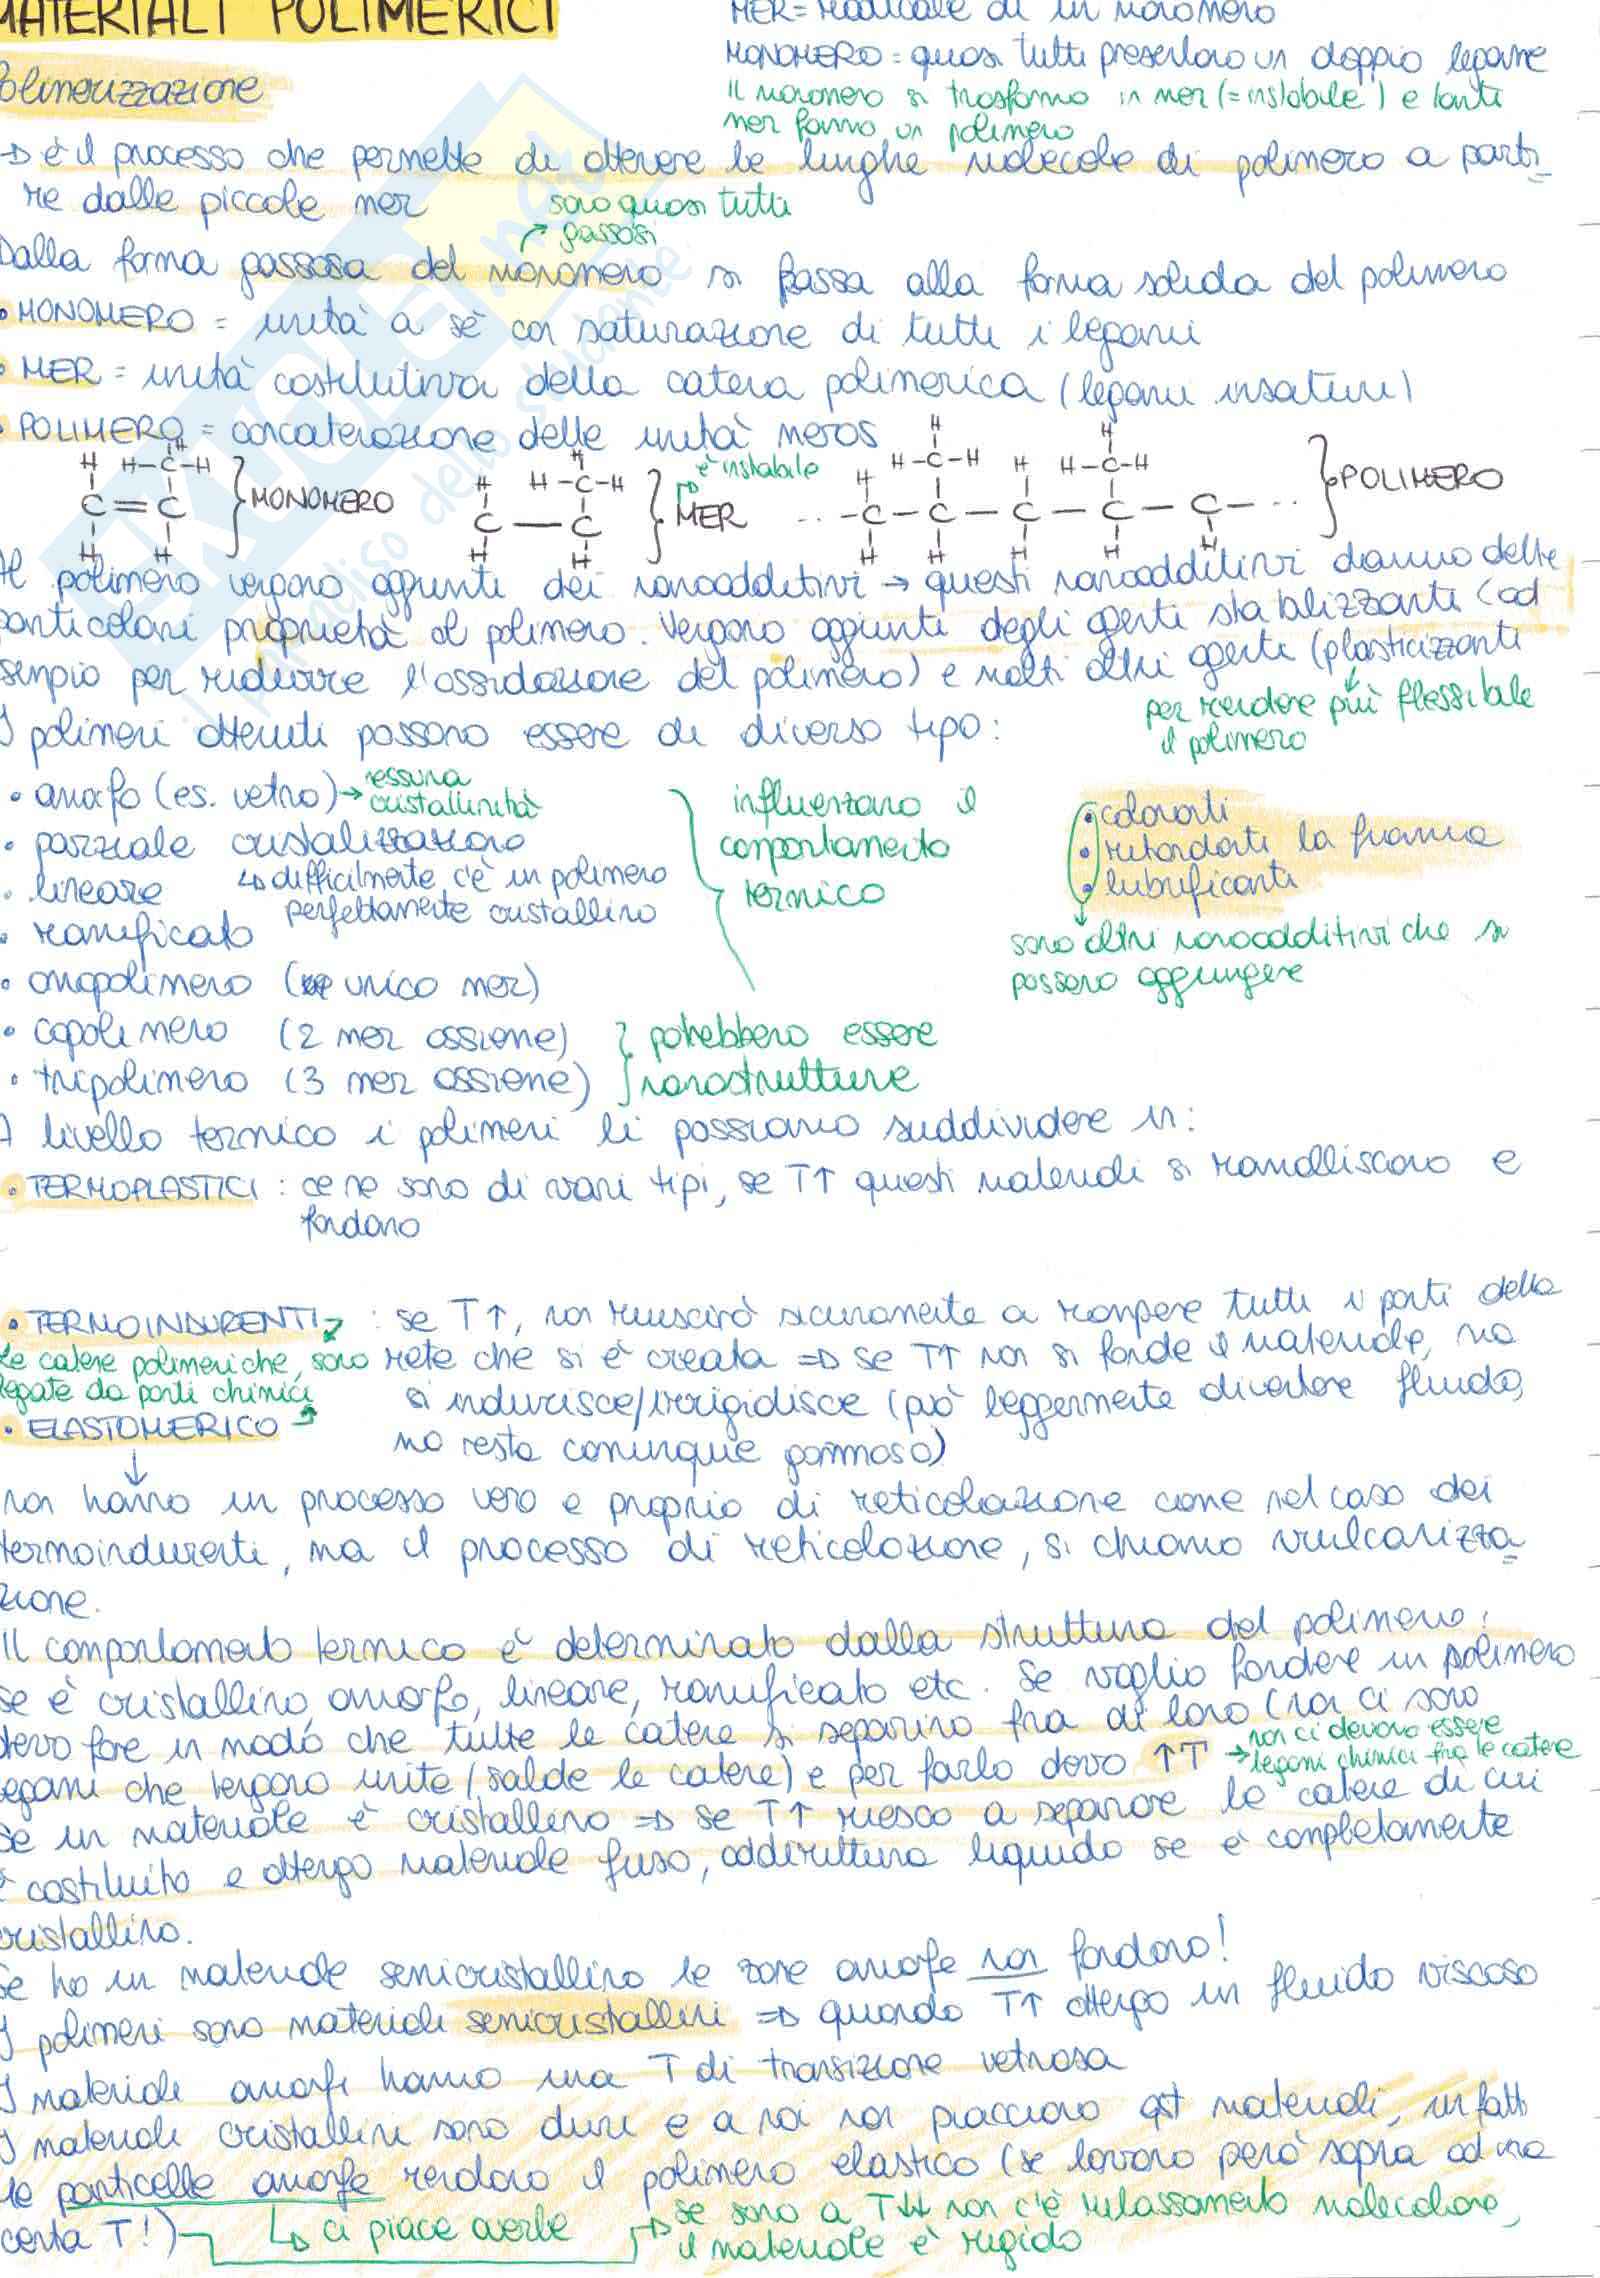 MATERIALI POLIMERICI
MER = radicale di un monomero
MONOMERO = quasi tutti presentano un doppio legame
Il monomero si trasforma in mer (= instabile) e tanti
mer fanno un polimero
Polimerizzazione
→ è il processo che permette di ottenere le lunghe molecole di polimero a parti-
re dalle piccole mer
sono quasi tutti
gassosi
Dalla forma gassosa del monomero si passa alla forma solida del polimero
• MONOMERO = unità a sé con saturazione di tutti i legami
• MER = unità costitutiva della catena polimerica (legami insaturi)
• POLIMERO = concatenazione delle unità meros
H H-C-H } MONOMERO
C=C
H H
H H-C-H } MER
è instabile
C-C
H H
H H-C-H H H-C-H } POLIMERO
..-C-C-C-C-C-...
H H H H H
Al polimero vengono aggiunti dei nanoadditivi → questi nanoadditivi danno delle
particolari proprietà al polimero. Vengono aggiunti degli agenti stabilizzanti (ad
esempio per ridurre l'ossidazione del polimero) e molti altri agenti (plasticizzanti
per rendere più flessibile
il polimero
I polimeri ottenuti possono essere di diverso tipo:
• amorfo (es. vetro) → nessuna
cristallinità
• parziale cristallizzazione
↳ difficilmente c'è un polimero
perfettamente cristallino
• lineare
• ramificato
• omopolimero (unico mer)
• copolimero (2 mer assieme)
• tripolimero (3 mer assieme)
potrebbero essere
nanostrutture
influenzano il
comportamento
termico
• coloranti
• ritardanti la fiamma
• lubrificanti
sono altri nanoadditivi che si
possono aggiungere
A livello termico i polimeri li possiamo suddividere in:
• TERMOPLASTICI : ce ne sono di vari tipi, se T↑ questi materiali si rammolliscono e
fondono
• TERMOINDURENTI : se T↑, non riuscirò sicuramente a rompere tutti i ponti della
rete che si è creata ⇒ se T↑ non si fonde il materiale, ma
si indurisce/irrigidisce (può leggermente diventare fluido,
ma resta comunque gommoso)
Le catene polimeriche, sono
legate da ponti chimici
• ELASTOMERICO
↓
non hanno un processo vero e proprio di reticolazione come nel caso dei
termoindurenti, ma il processo di reticolazione, si chiama vulcanizza-
zione.
Il comportamento termico è determinato dalla struttura del polimero:
se è cristallino, amorfo, lineare, ramificato etc. Se voglio fondere un polimero
devo fare in modo che tutte le catene si separino fra di loro (non ci sono
legami che tengono unite/salde le catene) e per farlo devo ↑T → non ci devono essere
legami chimici fra le catene
Se un materiale è cristallino ⇒ se T↑ riesco a separare le catene di cui
è costituito e ottengo materiale fuso, addirittura liquido se è completamente
cristallino.
Se ho un materiale semicristallino le zone amorfe non fondono!
I polimeri sono materiali semicristallini ⇒ quando T↑ ottengo un fluido viscoso
I materiali amorfi hanno una T di transizione vetrosa
I materiali cristallini sono duri e a noi non piacciono qst materiali, infatti
le particelle amorfe rendono il polimero elastico (se lavoro però sopra ad una
certa T!)
↳ ci piace averle
→ se sono a T↓↓ non c'è rilassamento molecolare,
il materiale è rigido